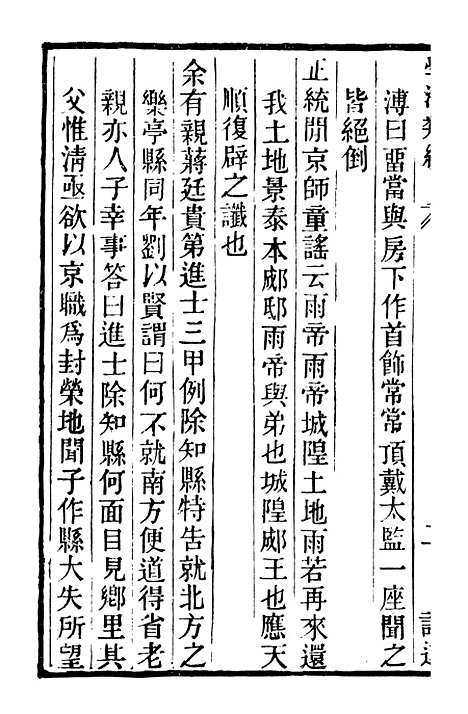 溥曰留當與房下作首飾常常頂戴太監一座聞之
皆絕倒
正統閒京師童謠云雨帝雨帝城隍土地雨若再來還
我土地景泰本郕邸雨帝與弟也城隍郕王也應天
順復辟之讖也
余有親蔣廷貴第進士三甲例除知縣特告就北方之
樂亭縣同年劉以賢謂曰何不就南方便道得省老
親亦人子幸事答曰進士除知縣何面目見鄉里其
父惟清亟欲以京職爲封榮地聞子作縣大失所望